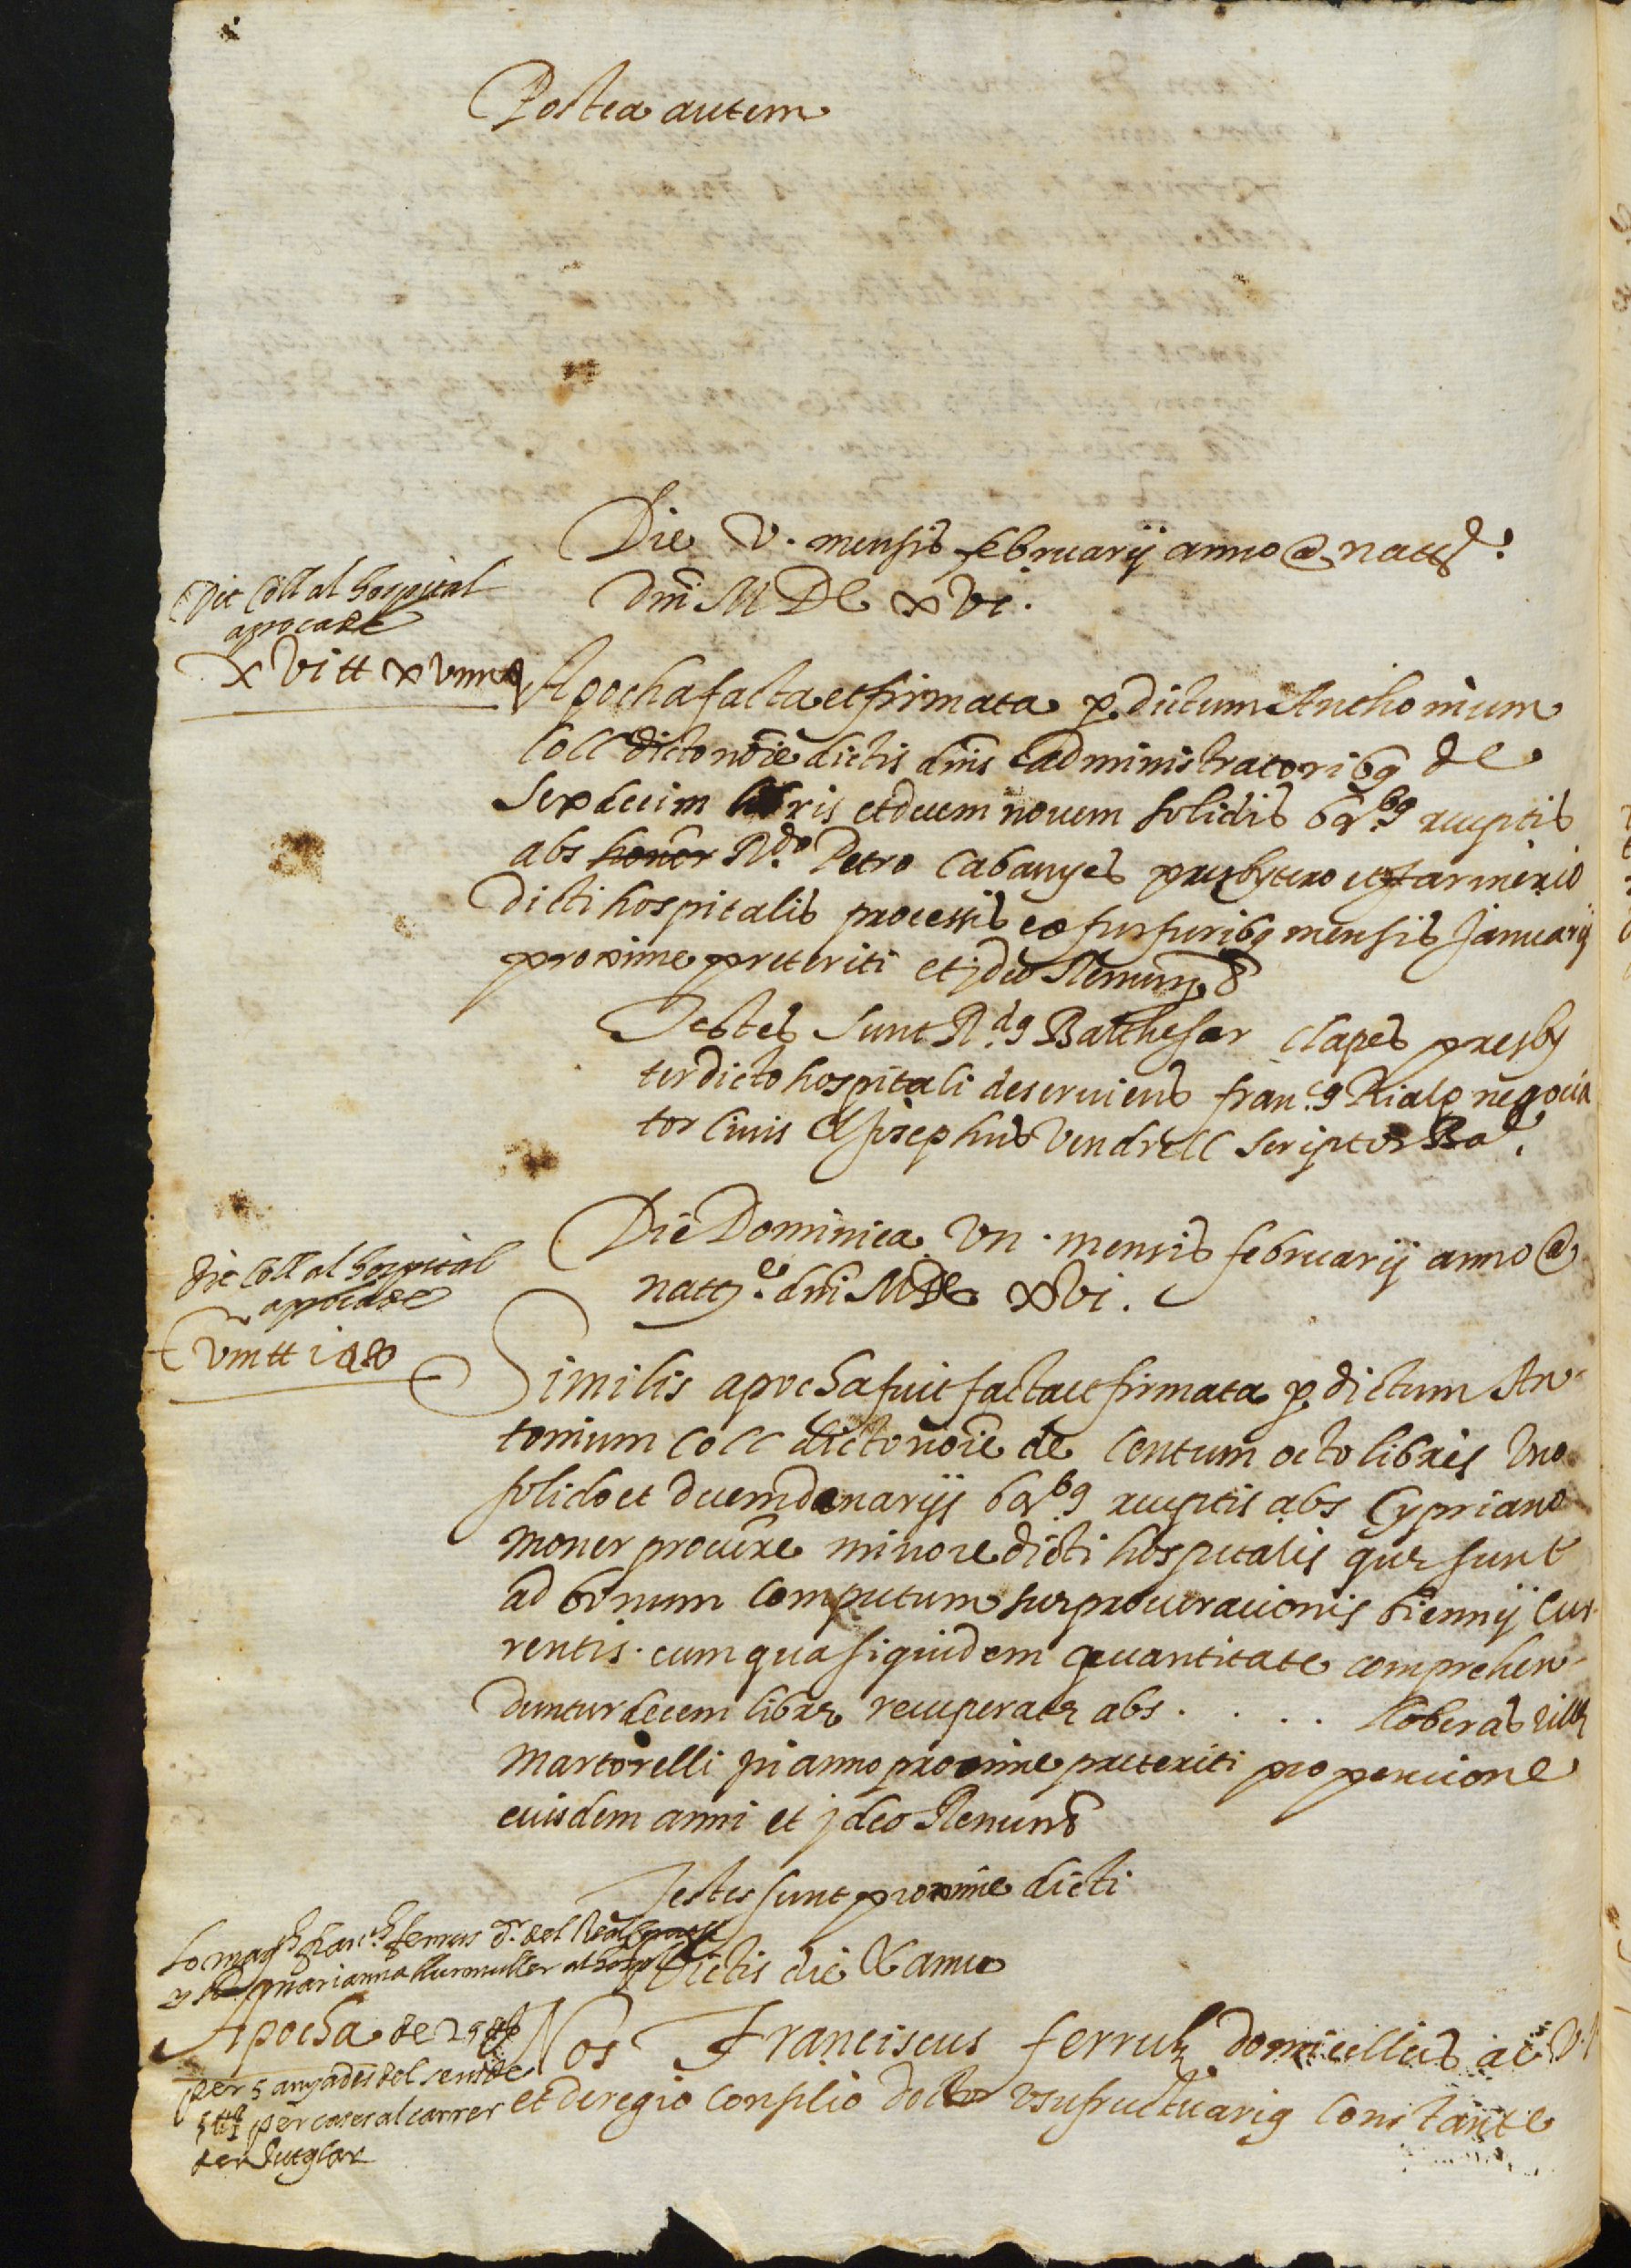 Postea autem
Die V. mensis februarij anno a natte.
dni M DC xVi.
Dit Coll al hospital
apoca de
x Vi ₶ x viiii
Apocha facta et firmata p. dictum Anthonium
Coll dicto noie dictis dnis administratoribq de
Sexdecim libris et decem novem solidis bar.bq receptis
abs honor R.do Petro Cabanyes presbytero et farinerio
dicti hospitalis processis ex furfuribq mensis Januarij
proxime preteriti et ideo Renun
Testes sunt R.dq Balthesar Clapes presby
ter dicto hospitali deserviens fran.cq Rialp negocia
tor Civis et Josephus Vendrell Scriptor Ba
Die Dominica Vii. mensis februarij anno a
natte. dni MDC xVi.
dit Coll al hospital
apoca de
Similis apocha fuit facta et firmata p. dictum An-
tonium Coll dicto noie de Centum octo libris Uno
solido et decem denarijs bar.bq receptis abs Cypriano
Moner procure minore dicti hospitalis que sunt
ad bonum Computum sue procurationis biennij Cur-
rentis. cum qua siquidem quantitate comprehen-
duntur decem librę recuperatę abs . . . . lloberas villę
Martorelli in anno proxime preteriti pro pencione
eiusdem anni et ideo Renun
Testes sunt proxime dicti
Dictis die et anno
Apocha de 25 ₶
per 5 anyades del sens de
5 ₶ per cases al carrer
den Jutglar
Nos Franciscus ferruz domicellus ac V.
et de regio Consilio doctor usufructuariq Constante